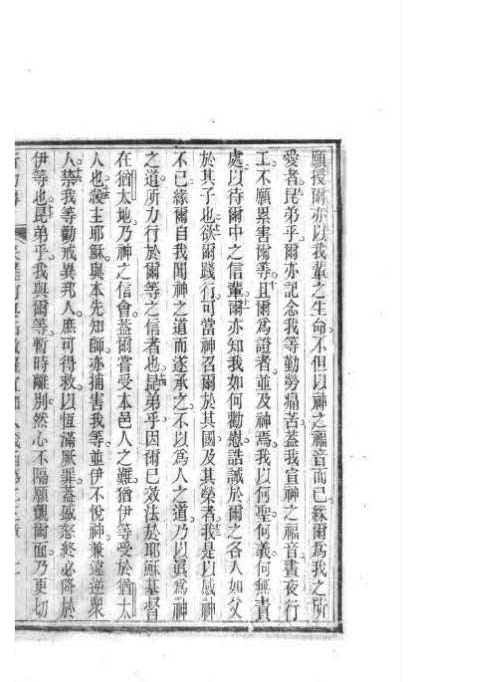 願授爾亦以我輩之生命。不但以神之福音而已。緣爾爲我之所
愛者。昆弟乎。爾亦記念我等勤勞痛苦。蓋我宣神之福音。晝夜行
工。不願累害爾等。且爾爲證者。並及神焉。我以何聖。何義。何無責
處。以待爾中之信輩。爾亦知我如何勸慰誥誡於爾之各人如父
於其子也。欲爾踐行。可當神召爾於其國。及其榮者。我是以感神
不已。緣爾自我聞神之道而遂承之。不以爲人之道。乃以眞爲神
之道。所力行於爾等之信者也。昆弟乎。因爾已效法於耶穌基督
在猶太地。乃神之信會。蓋爾嘗受本邑人之難。猶伊等受於猶太
人也。殺主耶穌。與本先知師。亦捕害我等。並伊不悅神。兼違逆眾
人。禁我等勸戒異邦人。庶可得救。以恆滿厥罪。蓋盛怒終必降於
伊等也。昆弟乎。我與爾等。暫時離別。然心不隔。願覿爾面。乃更切